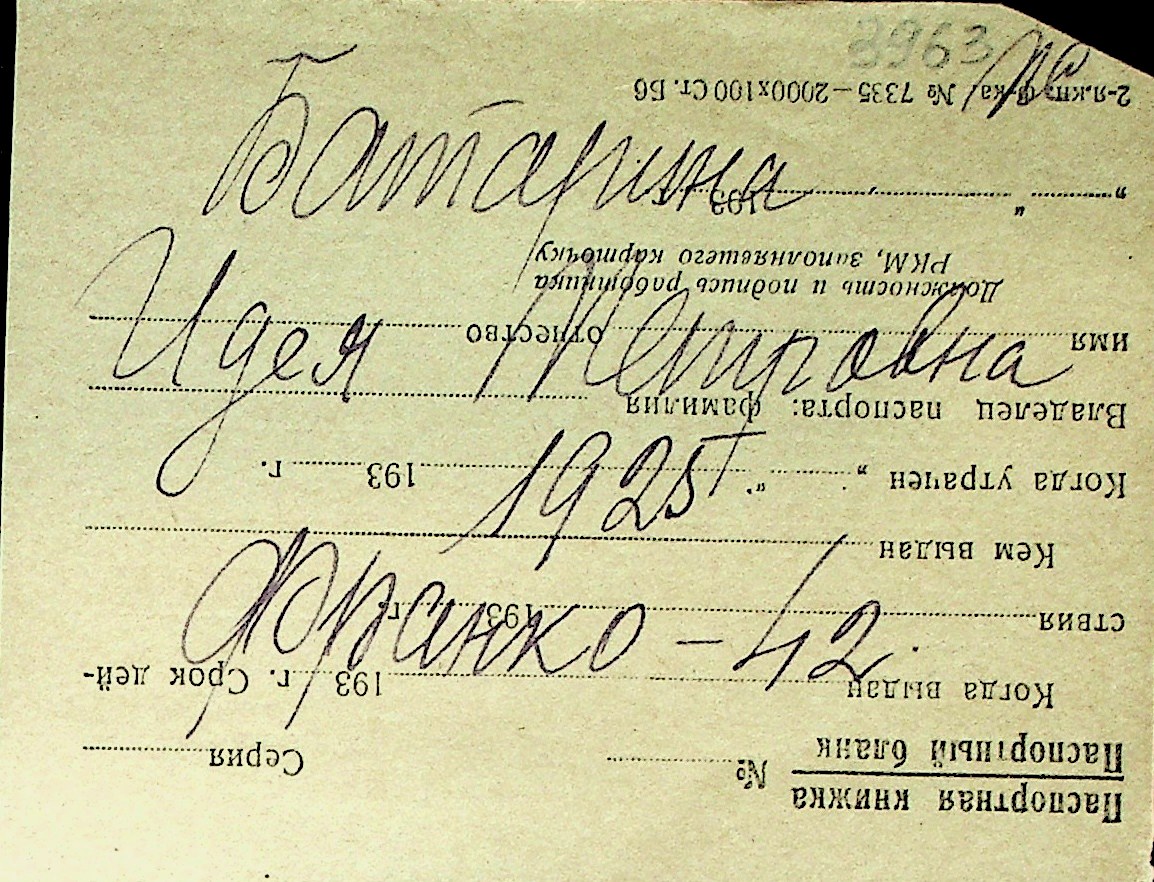 3963
Батарина
Идея Петровна
1925
Франко - 42.
Паспортная книжка
Паспортный бланк
№ Серия
Когда выдан 193 г. Срок дей-
ствия 193 г.
Кем выдан
Когда утрачен „ “ 193 г.
Владелец паспорта: фамилия
имя отчество
Должность и подпись работника
РКМ, заполнявшего карточку
„ “ 193
№ 7335 — 2000х100 Ст. Бб